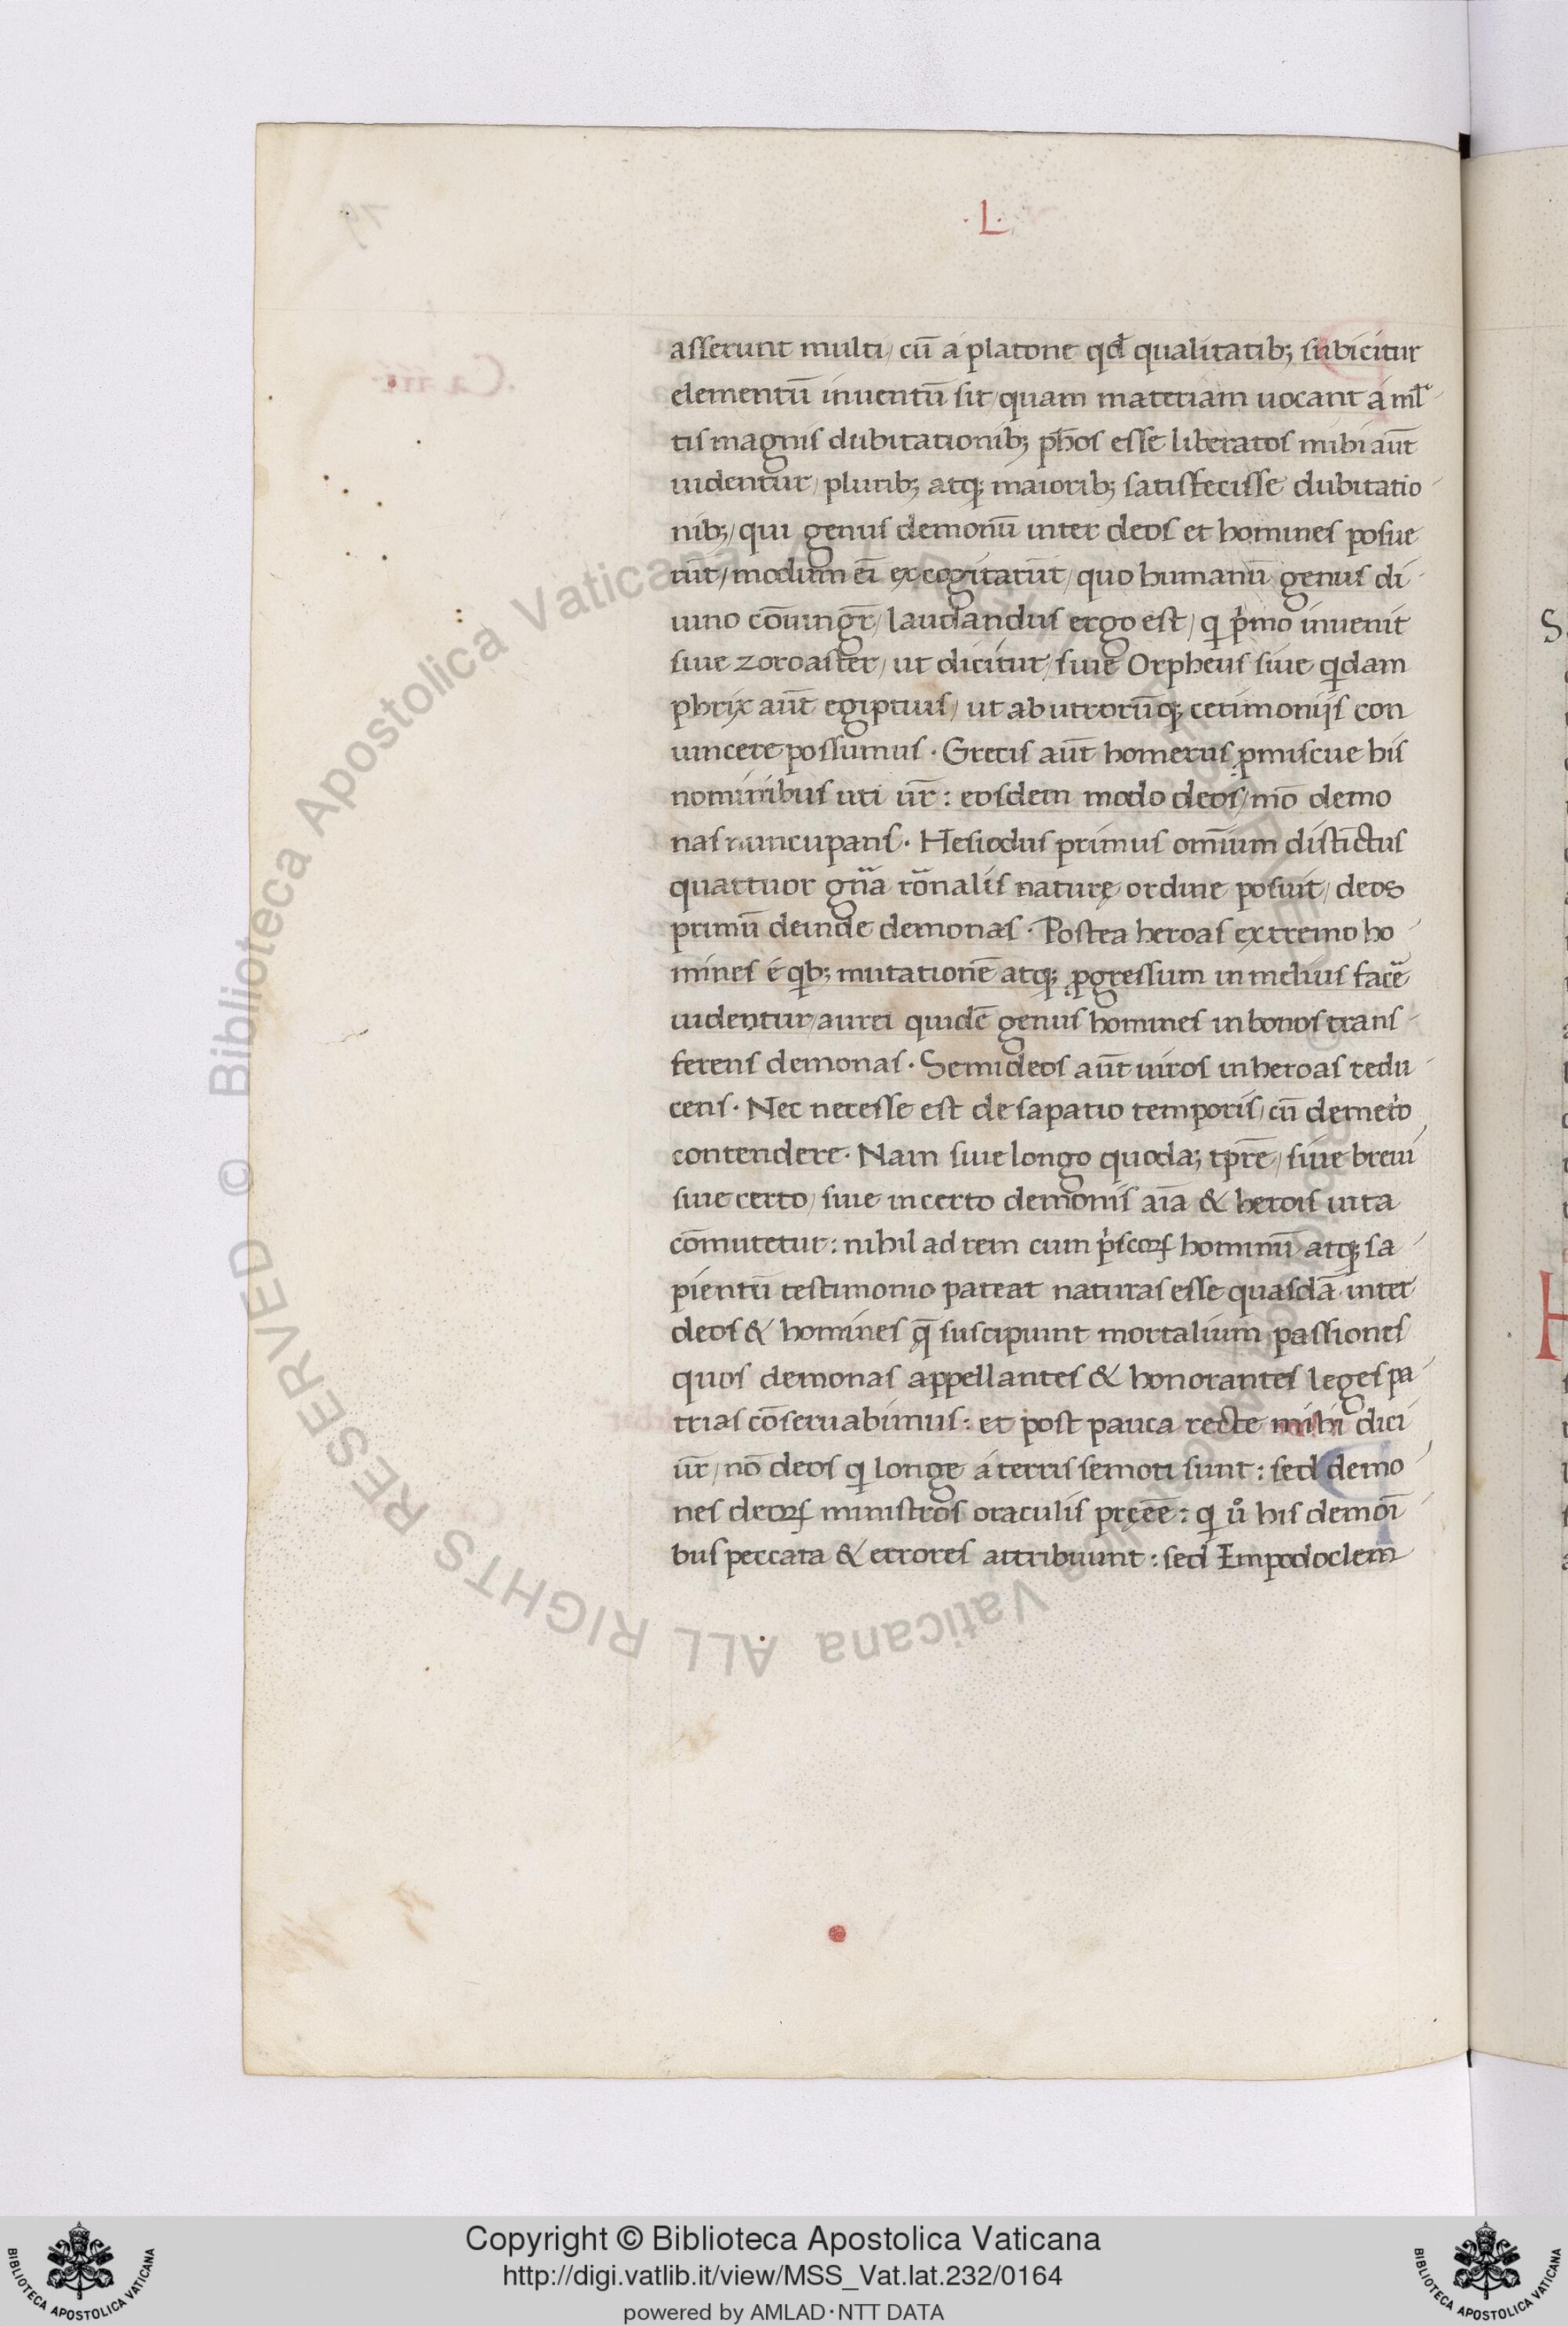 ·L·
asserunt multi/ cū a platone qđ qualitatib; subicitur
elementū inuentū sit/ quam materiam uocant a ml̄
tis magnis dubitationib; ph̄os esse liberatos mihi aūt
uidentur/ plurib; atq; maiorib; satisfecisse dubitatio
nib;/ qui genus demonū inter deos et homines posue
rūt/ modum eī excogitarūt/ quo humanū genus di
uino cōiungr̄/ laudandus ergo est/ q pͥmo inuenit
siue zoroaster/ ut dicitur/ siue Orpheus siue qͥdam
phrix aūt egiptius/ ut ab utrorūq; cerimonijs con
uincere possumus · Grecis aūt homerus ꝓmiscue his
nominibus uti ur̄: eosdem modo deos/ mō demo
nas nuncupans · Hesiodus primus omīum distīctus
quattuor gn̄a rōnalis naturę ordine posuit/ deos
primū deinde demonas · Postea heroas extremo ho
mines é qͥb; mutationē atq; ꝓgressum in melius facē
uidentur/ aurei quidē genus homines in bonos trans
ferens demonas · Semideos aūt uiros in heroas redu
cens · Nec necesse est de sapatio temporis/ cū demetͥo
contendere · Nam siue longo quoda; tp̄re/ siue breui
siue certo/ siue incerto demonis aīa & herois uita
cōmutetur: nihil ad rem cum pͥscoꝝ hominū atq; sa
pientū testimonio pateat naturas esse quasdā inter
deos & homines q̄ suscipiunt mortalium passiones
quos demonas appellantes & honorantes leges pa
trias cōseruabimus: et post pauca recte mihi dici
ur̄/ nō deos q longe á terris semoti sunt: sed demo
nes deoꝝ ministros oraculis pręēe: q uͦ his demoī
bus peccata & errores attribuunt: sed Empodoclem
Copyright © Biblioteca Apostolica Vaticana
http://digi.vatlib.it/view/MSS_Vat.lat.232/0164
powered by AMLAD·NTT DATA
BIBLIOTECA APOSTOLICA VATICANA
BIBLIOTECA APOSTOLICA VATICANA
© Biblioteca Apostolica Vaticana ALL RIGHTS RESERVED